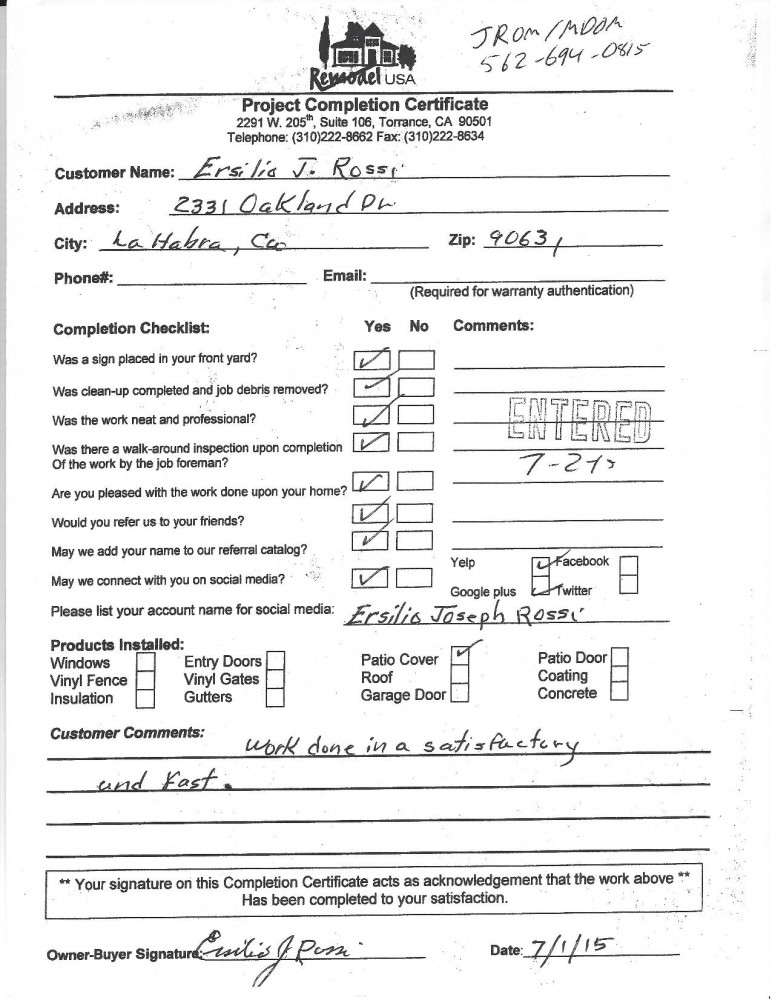 JROM/MDOM
562-694-0815
Remodel USA
Project Completion Certificate
2291 W. 205th, Suite 106, Torrance, CA 90501
Telephone: (310)222-8662 Fax: (310)222-8634
Customer Name: Ersilio J. Rossi
Address: 2331 Oakland Dr
City: La Habra, Ca Zip: 90631
Phone#: Email:
(Required for warranty authentication)
Completion Checklist: Yes No Comments:
Was a sign placed in your front yard?
Was clean-up completed and job debris removed?
Was the work neat and professional?
ENTERED
Was there a walk-around inspection upon completion
Of the work by the job foreman?
Are you pleased with the work done upon your home?
Would you refer us to your friends?
May we add your name to our referral catalog?
Yelp Facebook
May we connect with you on social media?
Google plus Twitter
Please list your account name for social media: Ersilio Joseph Rossi
Products Installed:
Windows Entry Doors Patio Cover Patio Door
Vinyl Fence Vinyl Gates Roof Coating
Insulation Gutters Garage Door Concrete
Customer Comments: Work done in a satisfactory
and Fast.
** Your signature on this Completion Certificate acts as acknowledgement that the work above **
Has been completed to your satisfaction.
Owner-Buyer Signature: Ersilio J Rossi Date: 7/1/15